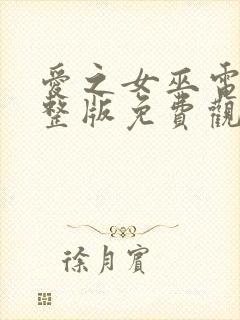 愛之女巫電
整版免費觀
徐月賓